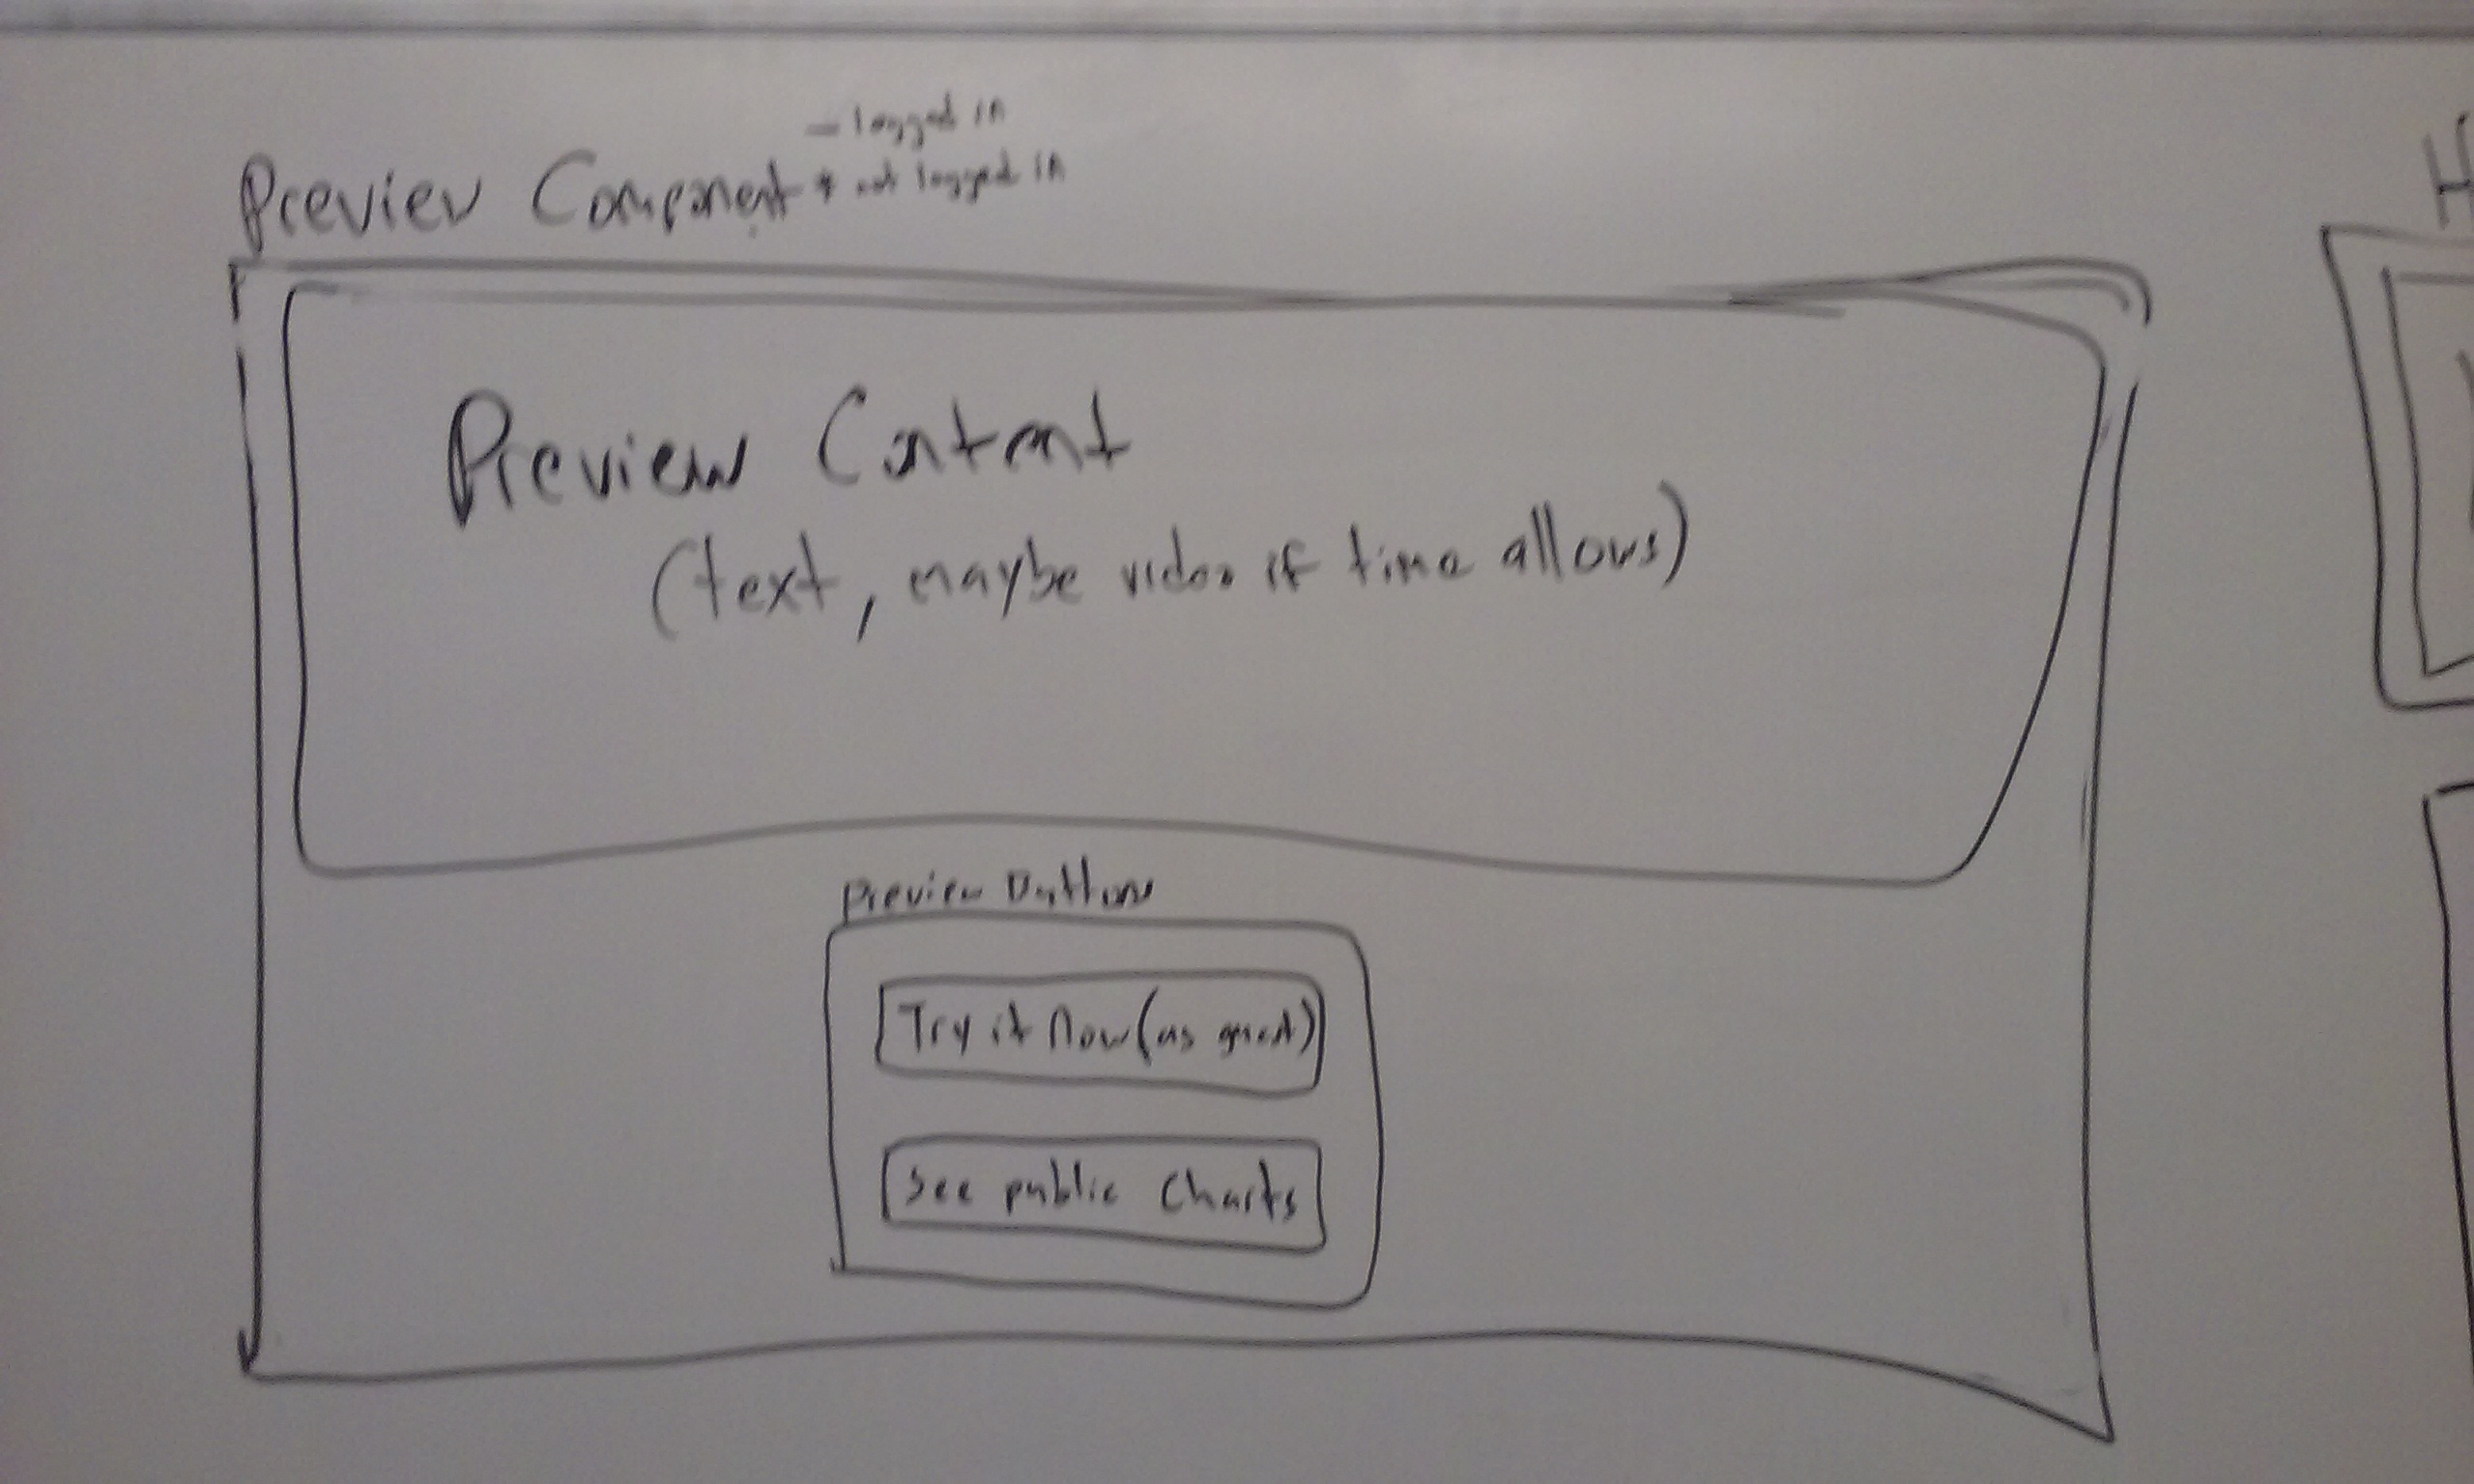 – logged in
Preview Component * not logged in
Preview Content
(text, maybe video if time allows)
Preview Buttons
Try it Now (as guest)
See public Charts
H